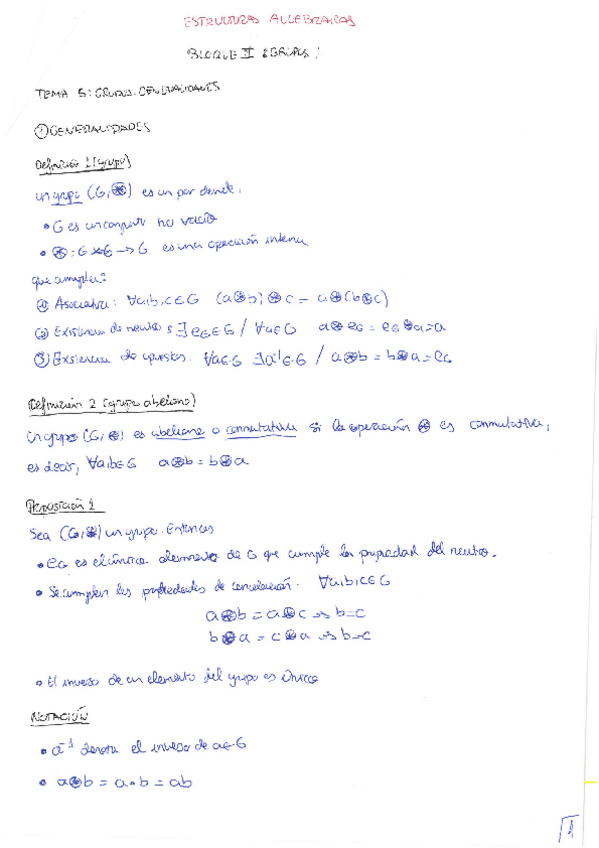 ESTRUCTURAS ALGEBRAICAS
BLOQUE II: GRUPOS
TEMA 5: GRUPOS. GENERALIDADES
① GENERALIDADES
Definición 1 (grupo)
Un grupo (G,⊛) es un par donde:
• G es un conjunto no vacío
• ⊛: G×G → G es una operación interna
que cumple:
① Asociativa: ∀a,b,c∈G (a⊛b)⊛c = a⊛(b⊛c)
② Existencia de neutro: ∃e_G∈G / ∀a∈G a⊛e_G = e_G⊛a = a
③ Existencia de opuestos. ∀a∈G ∃a⁻¹∈G / a⊛b = b⊛a = e_G
Definición 2 (grupo abeliano)
Un grupo (G,⊛) es abeliano o conmutativo si la operación ⊛ es conmutativa,
es decir, ∀a,b∈G a⊛b = b⊛a
Proposición 1
Sea (G,⊛) un grupo. Entonces
• e_G es el único elemento de G que cumple la propiedad del neutro.
• Se cumplen las propiedades de cancelación. ∀a,b,c∈G
a⊛b = a⊛c ⇒ b=c
b⊛a = c⊛a ⇒ b=c
• El inverso de un elemento del grupo es único
NOTACIÓN
• a⁻¹ denota el inverso de a∈G
• a⊛b = a·b = ab